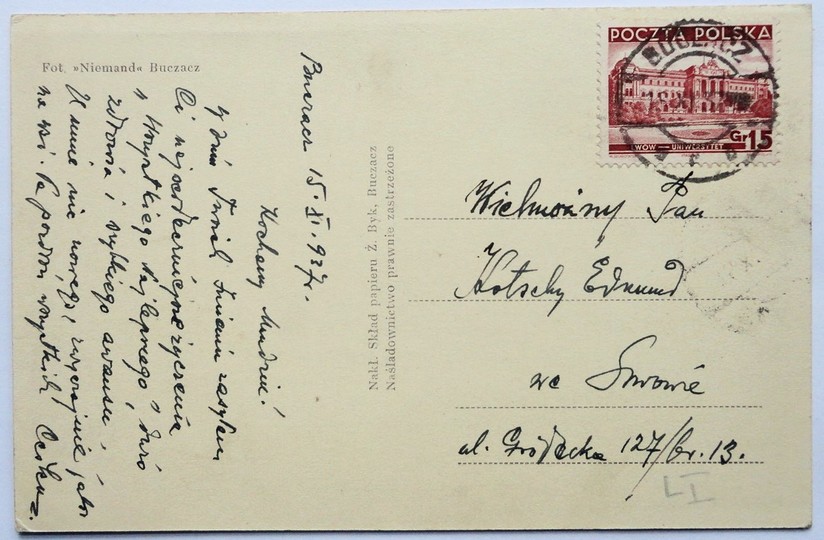 Fot. »Niemand« Buczacz
Buczacz 15. XI. 937r.
Kochany
W dniu Twoich Imienin zasyłam
Ci najserdeczniejsze życzenia
wszystkiego najlepszego, dużo
zdrowia i szybkiego awansu.
U mnie nic nowego, zwyczajnie jak
na wsi. Pozdrów wszystkich
Nakł. Skład papieru Ż. Byk, Buczacz
Naśladownictwo prawnie zastrzeżone
POCZTA POLSKA
LWÓW — UNIWERSYTET
Gr 15
BUCZACZ
Wielmożny Pan
Kotschy Edmund
we Lwowie
ul. Gródecka 127/br. 13.